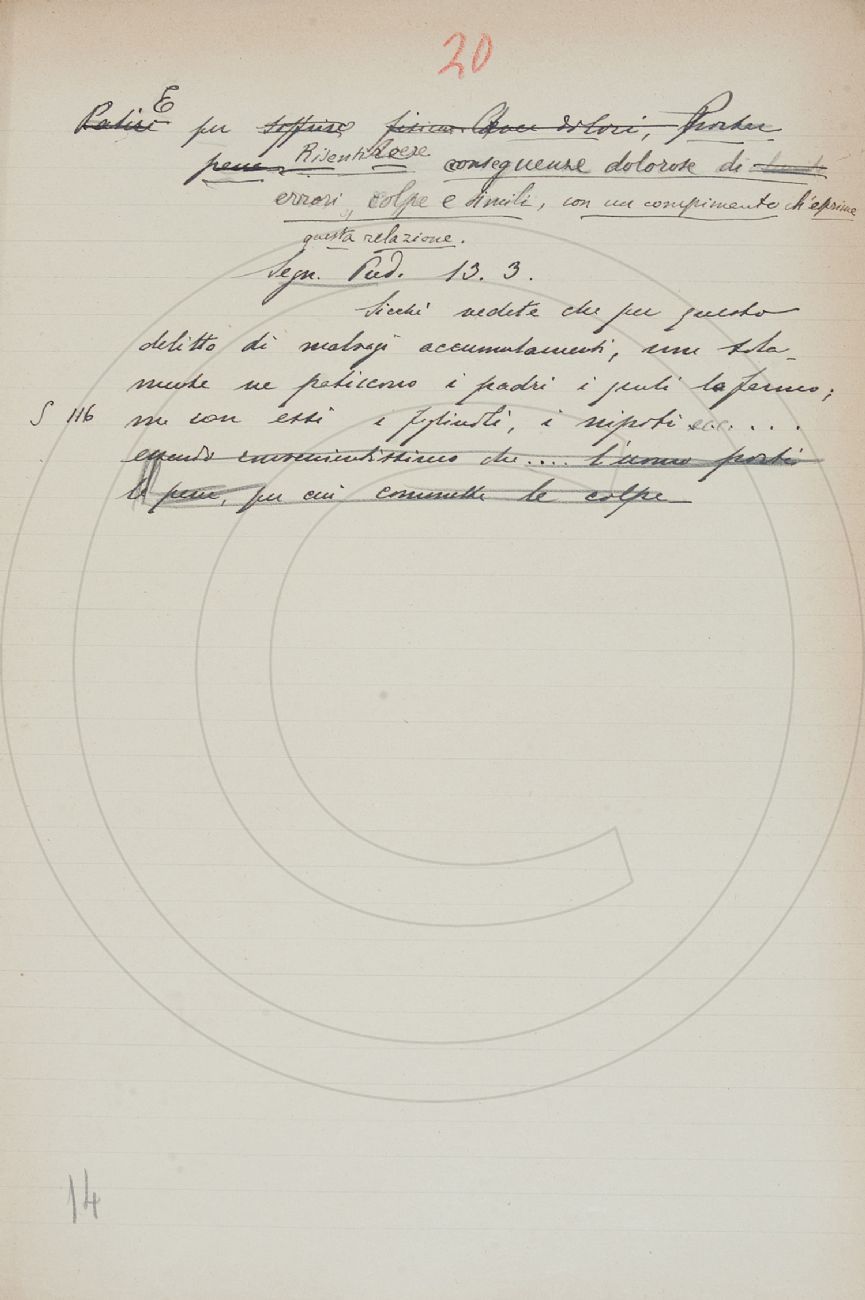 20
Patire E per soffrire fisici Aver dolori, Portar
pene Risentire conseguenze dolorose di
errori, colpe e simili, con un compimento ch'eprime
questa relazione.
Segn. Pred. 13. 3.
Sicchè vedete che per questo
delitto di malvagi accumulamenti, non sola-
mente ne patiscono i padri i quali la fanno;
ma con essi i figliuoli, i nipoti ecc....
S 116
essendo convenientissimo che.... l'uomo porti
le pene, per cui commette le colpe
14